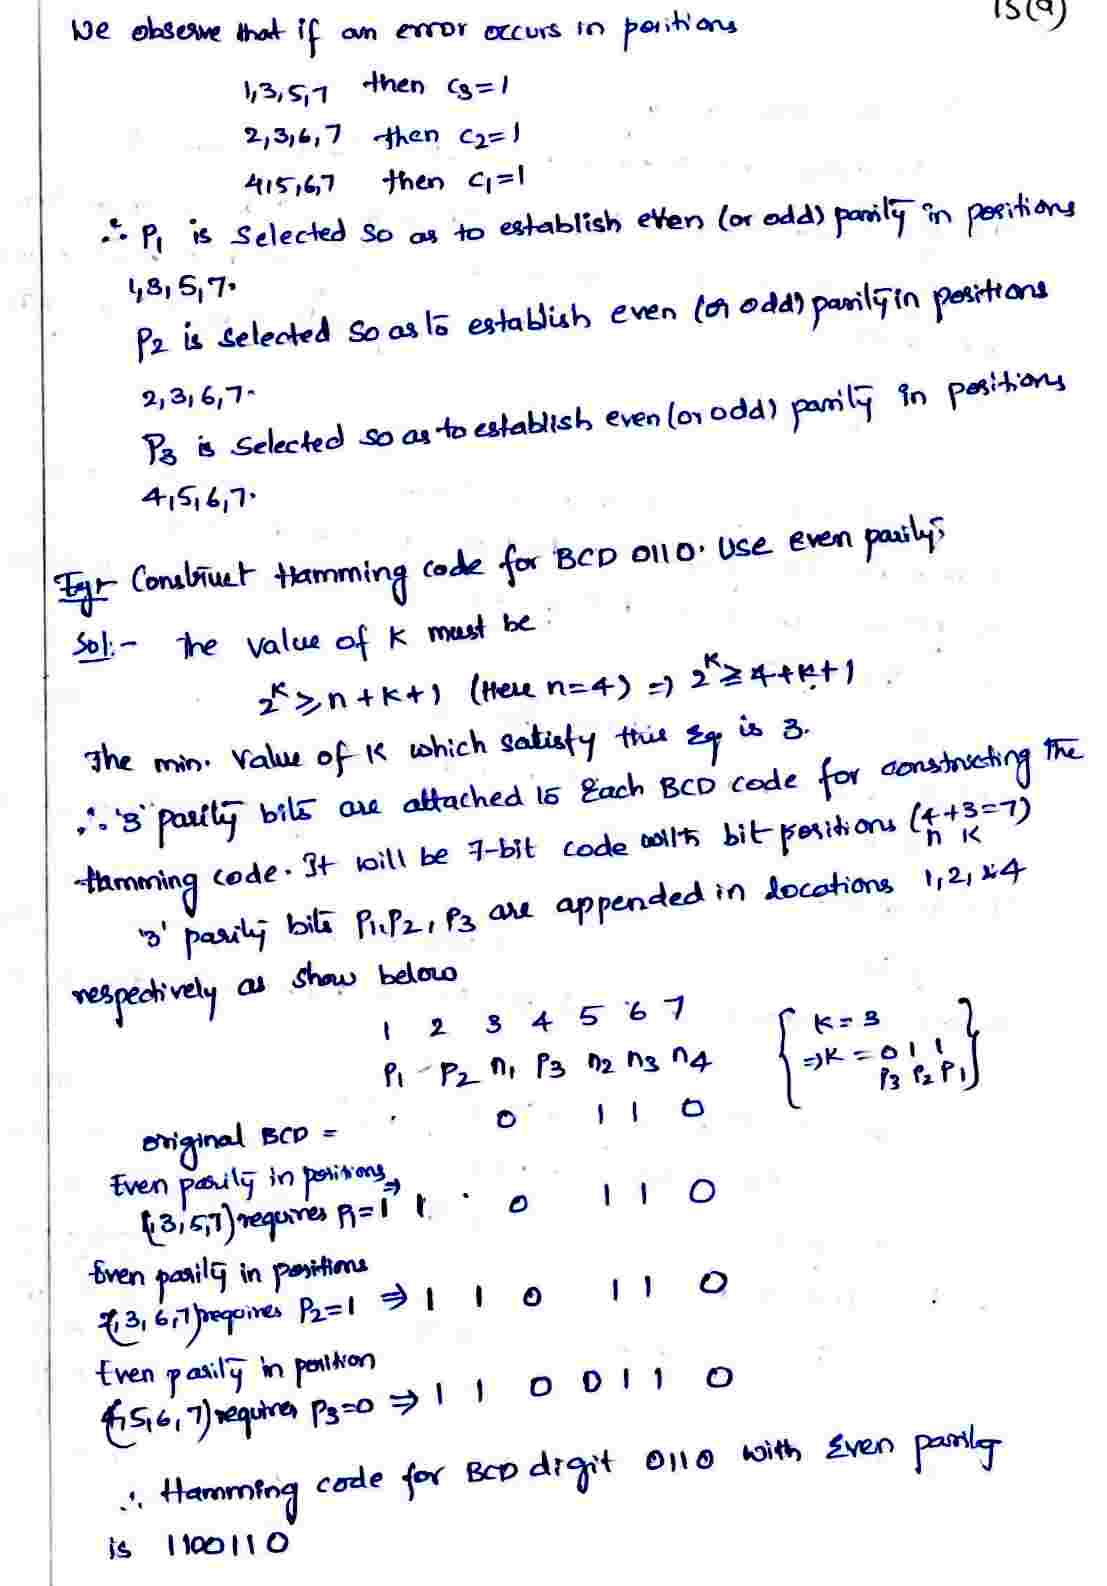 15(a)
We observe that if an error occurs in positions
1,3,5,7 then c3=1
2,3,6,7 then c2=1
4,5,6,7 then c1=1
∴ P1 is selected so as to establish even (or odd) parity in positions
1,3,5,7.
P2 is selected so as to establish even (or odd) parity in positions
2,3,6,7.
P3 is selected so as to establish even (or odd) parity in positions
4,5,6,7.
Eg:- Construct Hamming code for BCD 0110. Use even parity.
Sol:- The value of K must be:
2^K ≥ n+K+1 (Here n=4) => 2^K ≥ 4+K+1
The min. value of K which satisfy this Eq is 3.
∴ '3' parity bits are attached to Each BCD code for constructing the
Hamming code. It will be 7-bit code with bit positions (4+3=7)
n K
'3' parity bits P1,P2,P3 are appended in locations 1,2,&4
respectively as show below
1 2 3 4 5 6 7 K=3
P1 - P2 n1 P3 n2 n3 n4 =>K = 0 1 1
P3 P2 P1
original BCD = 0 1 1 0
Even parity in positions
(1,3,5,7) requires P1=1 => 1 0 1 1 0
Even parity in positions
(2,3,6,7) requires P2=1 => 1 1 0 1 1 0
Even parity in position
(4,5,6,7) requires P3=0 => 1 1 0 0 1 1 0
∴ Hamming code for BCD digit 0110 with Even parity
is 1100110